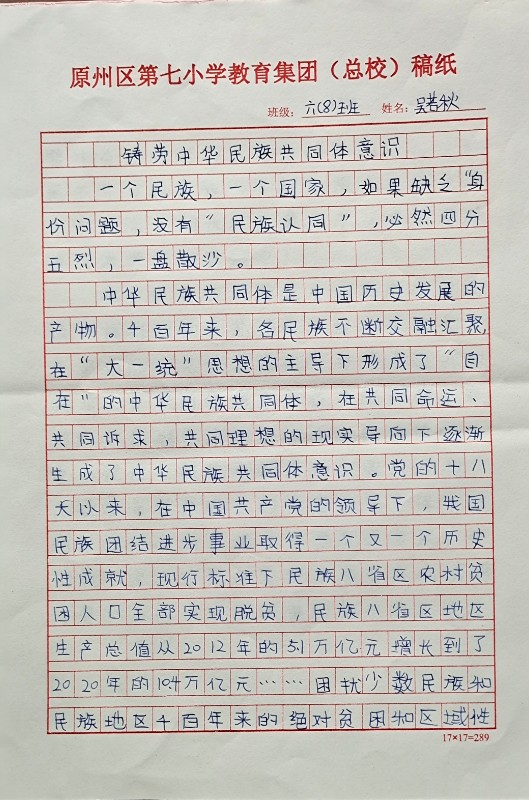 原州区第七小学教育集团（总校）稿纸
班级：六(8)班 姓名：吴若秋
铸劳中华民族共同体意识
一个民族，一个国家，如果缺乏“身
份问题，没有“民族认同”，必然四分
五烈，一盘散沙。
中华民族共同体是中国历史发展的
产物。千百年来，各民族不断交融汇聚，
在“大一统”思想的主导下形成了“自
在”的中华民族共同体，在共同命运、
共同诉求，共同理想的现实导向下逐渐
生成了中华民族共同体意识。党的十八
大以来，在中国共产党的领导下，我国
民族团结进步事业取得一个又一个历史
性成就，现行标准下民族八省区农村贫
困人口全部实现脱贫，民族八省区地区
生产总值从2012年的5.1万亿元增长到了
2020年的10.4万亿元……困扰少数民族和
民族地区千百年来的绝对贫困和区域性
17×17=289